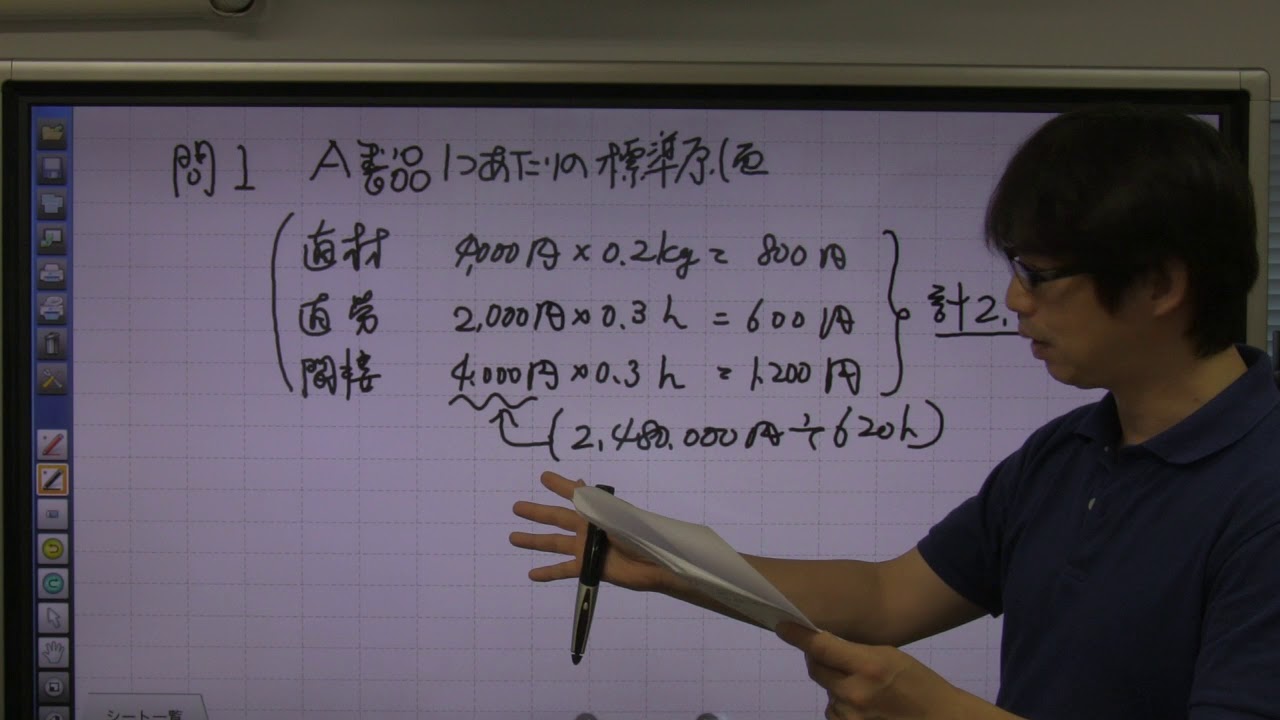 問1 A製品1つあたりの標準原価
直材 4,000円×0.2kg=800円
直労 2,000円×0.3h=600円 計2,
間接 4,000円×0.3h=1,200円
(2,480,000円÷620h)
シート一覧